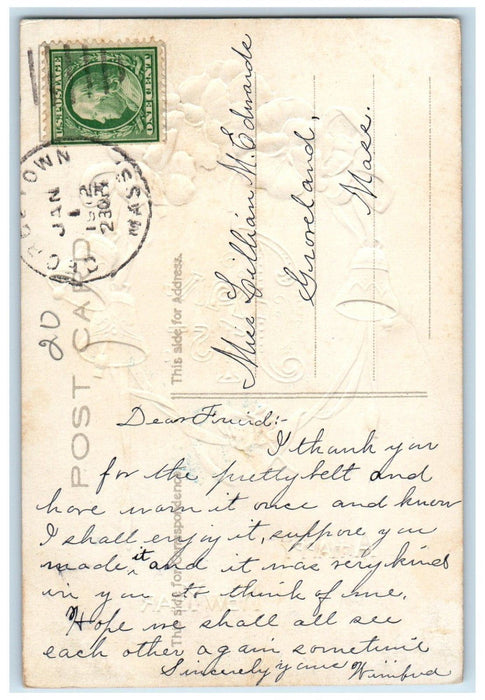 U.S. POSTAGE
ONE CENT
GEORGETOWN
JAN
1
1912
230PM
MASS.
20
POST CARD
This side for Correspondence
This side for Address.
Miss Lillian M. Edwards
Groveland,
Mass.
Dear Friend:-
I thank you
for the pretty belt and
have worn it once and know
I shall enjoy it, suppose you
made it and it was very kind
in you to think of me.
Hope we shall all see
each other again sometime
Sincerely yours Winifred